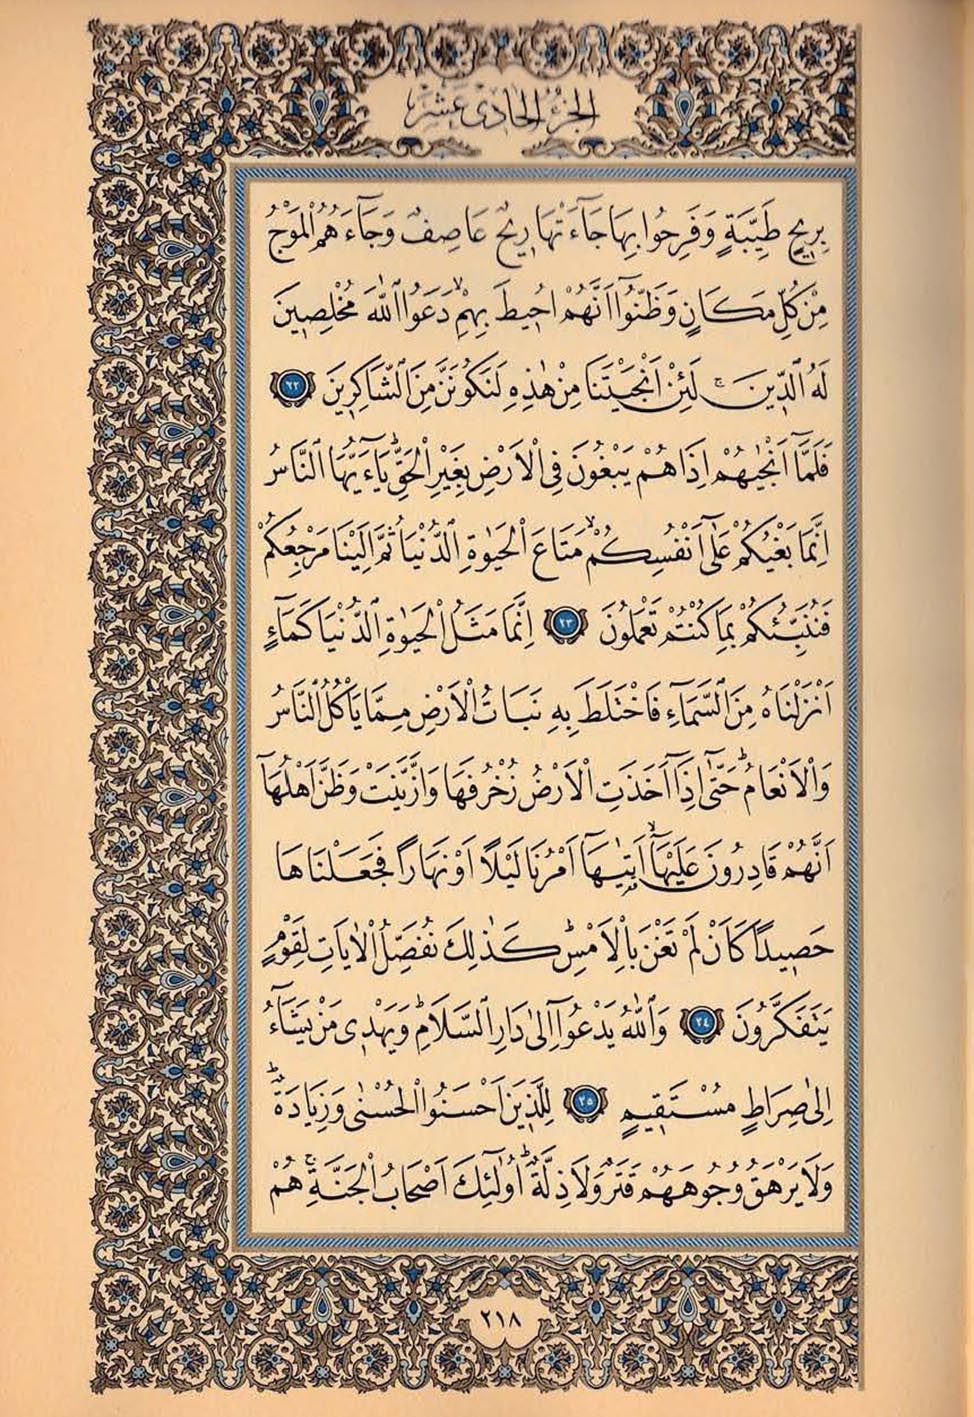 الجزء الحادى عشر
بِرِيحٍ طَيِّبَةٍ وَفَرِحُوا بِهَا جَآءَتْهَا رِيحٌ عَاصِفٌ وَجَآءَهُمُ الْمَوْجُ
مِنْ كُلِّ مَكَانٍ وَظَنُّوٓا اَنَّهُمْ اُحِيطَ بِهِمْۙ دَعَوُا اللّٰهَ مُخْلِصِينَ
لَهُ الدِّينَۚ لَئِنْ اَنْجَيْتَنَا مِنْ هٰذِهِ لَنَكُونَنَّ مِنَ الشَّاكِرِينَ ٢٢
فَلَمَّآ اَنْجٰيهُمْ اِذَا هُمْ يَبْغُونَ فِى الْاَرْضِ بِغَيْرِ الْحَقِّۜ يَآءَيُّهَا النَّاسُ
اِنَّمَا بَغْيُكُمْ عَلٰٓى اَنْفُسِكُمْۙ مَتَاعَ الْحَيٰوةِ الدُّنْيَا ثُمَّ اِلَيْنَا مَرْجِعُكُمْ
فَنُنَبِّئُكُمْ بِمَا كُنْتُمْ تَعْمَلُونَ ٢٣ اِنَّمَا مَثَلُ الْحَيٰوةِ الدُّنْيَا كَمَآءٍ
اَنْزَلْنَاهُ مِنَ السَّمَآءِ فَاخْتَلَطَ بِهِ نَبَاتُ الْاَرْضِ مِمَّا يَاْكُلُ النَّاسُ
وَالْاَنْعَامُۜ حَتّٰٓى اِذَآ اَخَذَتِ الْاَرْضُ زُخْرُفَهَا وَازَّيَّنَتْ وَظَنَّ اَهْلُهَآ
اَنَّهُمْ قَادِرُونَ عَلَيْهَآۙ اَتٰيهَآ اَمْرُنَا لَيْلًا اَوْ نَهَارًا فَجَعَلْنَاهَا
حَصِيدًا كَاَنْ لَمْ تَغْنَ بِالْاَمْسِۜ كَذٰلِكَ نُفَصِّلُ الْاٰيَاتِ لِقَوْمٍ
يَتَفَكَّرُونَ ٢٤ وَاللّٰهُ يَدْعُوٓا اِلٰى دَارِ السَّلَامِۜ وَيَهْدِى مَنْ يَشَآءُ
اِلٰى صِرَاطٍ مُسْتَقِيمٍ ٢٥ لِلَّذِينَ اَحْسَنُوا الْحُسْنٰى وَزِيَادَةٌۜ
وَلَا يَرْهَقُ وُجُوهَهُمْ قَتَرٌ وَلَا ذِلَّةٌۜ اُولٰٓئِكَ اَصْحَابُ الْجَنَّةِۚ هُمْ
٢١٨